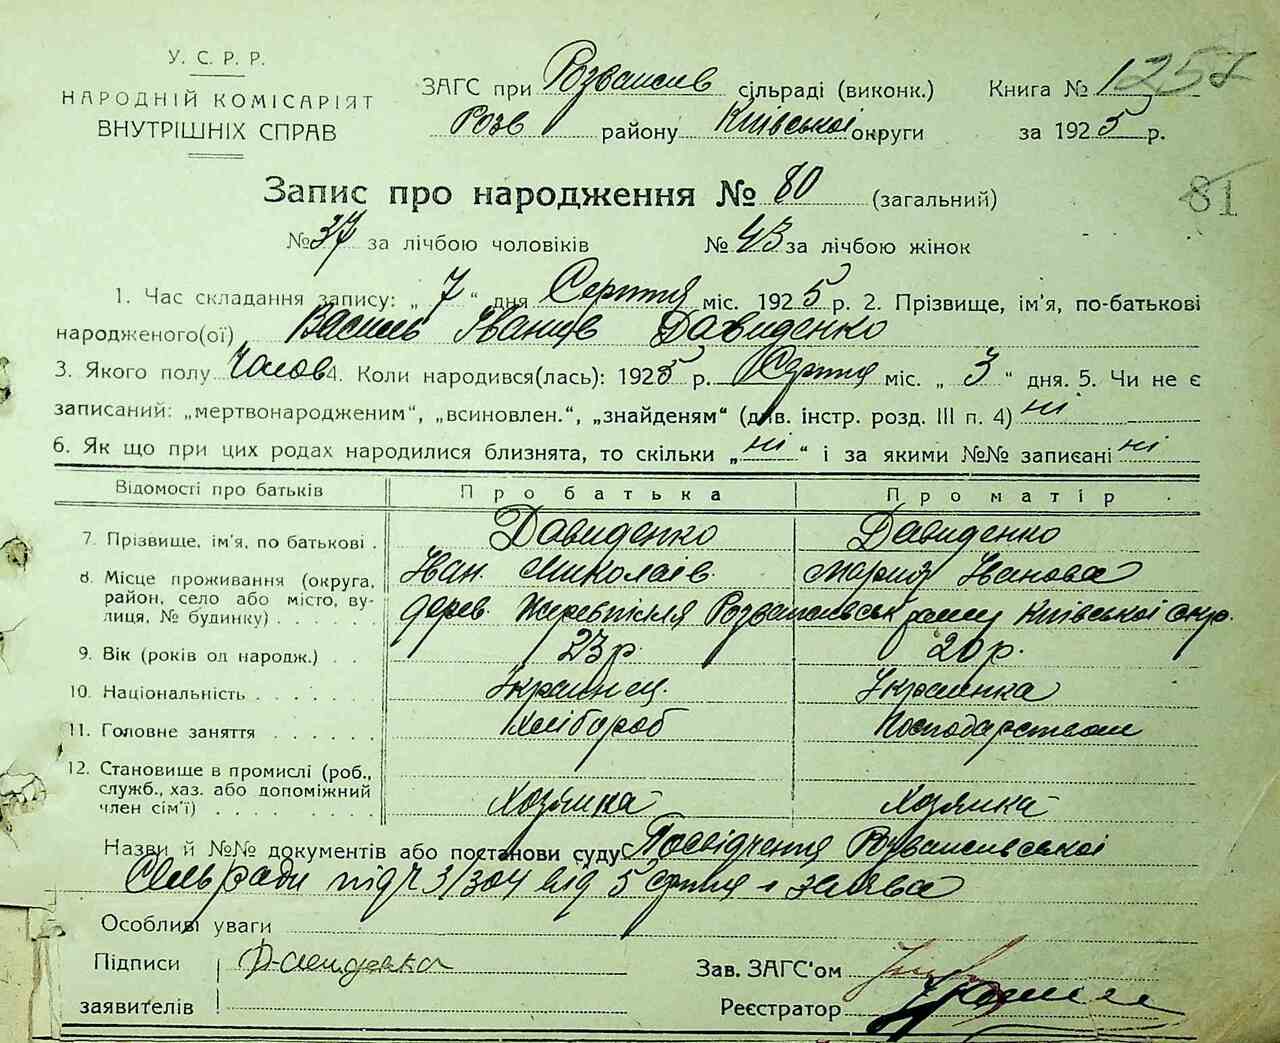 У. С. Р. Р.
НАРОДНІЙ КОМІСАРІЯТ
ВНУТРІШНІХ СПРАВ
ЗАГС при Розважів сільраді (виконк.) Книга № 1257
Розв району Київської округи за 1925 р.
81
Запис про народження № 80 (загальний)
№ 37 за лічбою чоловіків № 43 за лічбою жінок
1. Час складання запису: „ 7 “ дня Серпня міс. 1925 р. 2. Прізвище, ім'я, по-батькові
народженого(ої) Василь Іванів Давиденко
3. Якого полу Чолов 4. Коли народився(лась): 1925 р. Серпня міс. „ 3 “ дня. 5. Чи не є
записаний: „мертвонародженим“, „всиновлен.“, „знайденям“ (див. інстр. розд. III п. 4) ні
6. Як що при цих родах народилися близнята, то скільки „ ні “ і за якими №№ записані ні
Відомості про батьків Про батька Про матір
7. Прізвище, ім'я, по батькові . Давиденко Давиденко
Іван Миколаїв. Мария Іванова
8. Місце проживання (округа,
район, село або місто, ву-
лиця, № будинку) . . . . . дерев. Жеребпілля Розважівськ рану Київської окр.
9. Вік (років од народж.) . . 23 р. 20 р.
10. Національність . . . . . Українец. Українка
11. Головне заняття . . . . . Хлібороб Господарством
12. Становище в промислі (роб.,
служб., хаз. або допоміжний
член сім'ї) . . . . . . . Хозяїна Хозяїка
Назви й №№ документів або постанови суду Посвідчення Розважівської
Сельради під ч 3/304 від 5 серпня і заява
Особливі уваги
Підписи
заявителів
Зав. ЗАГС'ом
Реєстратор